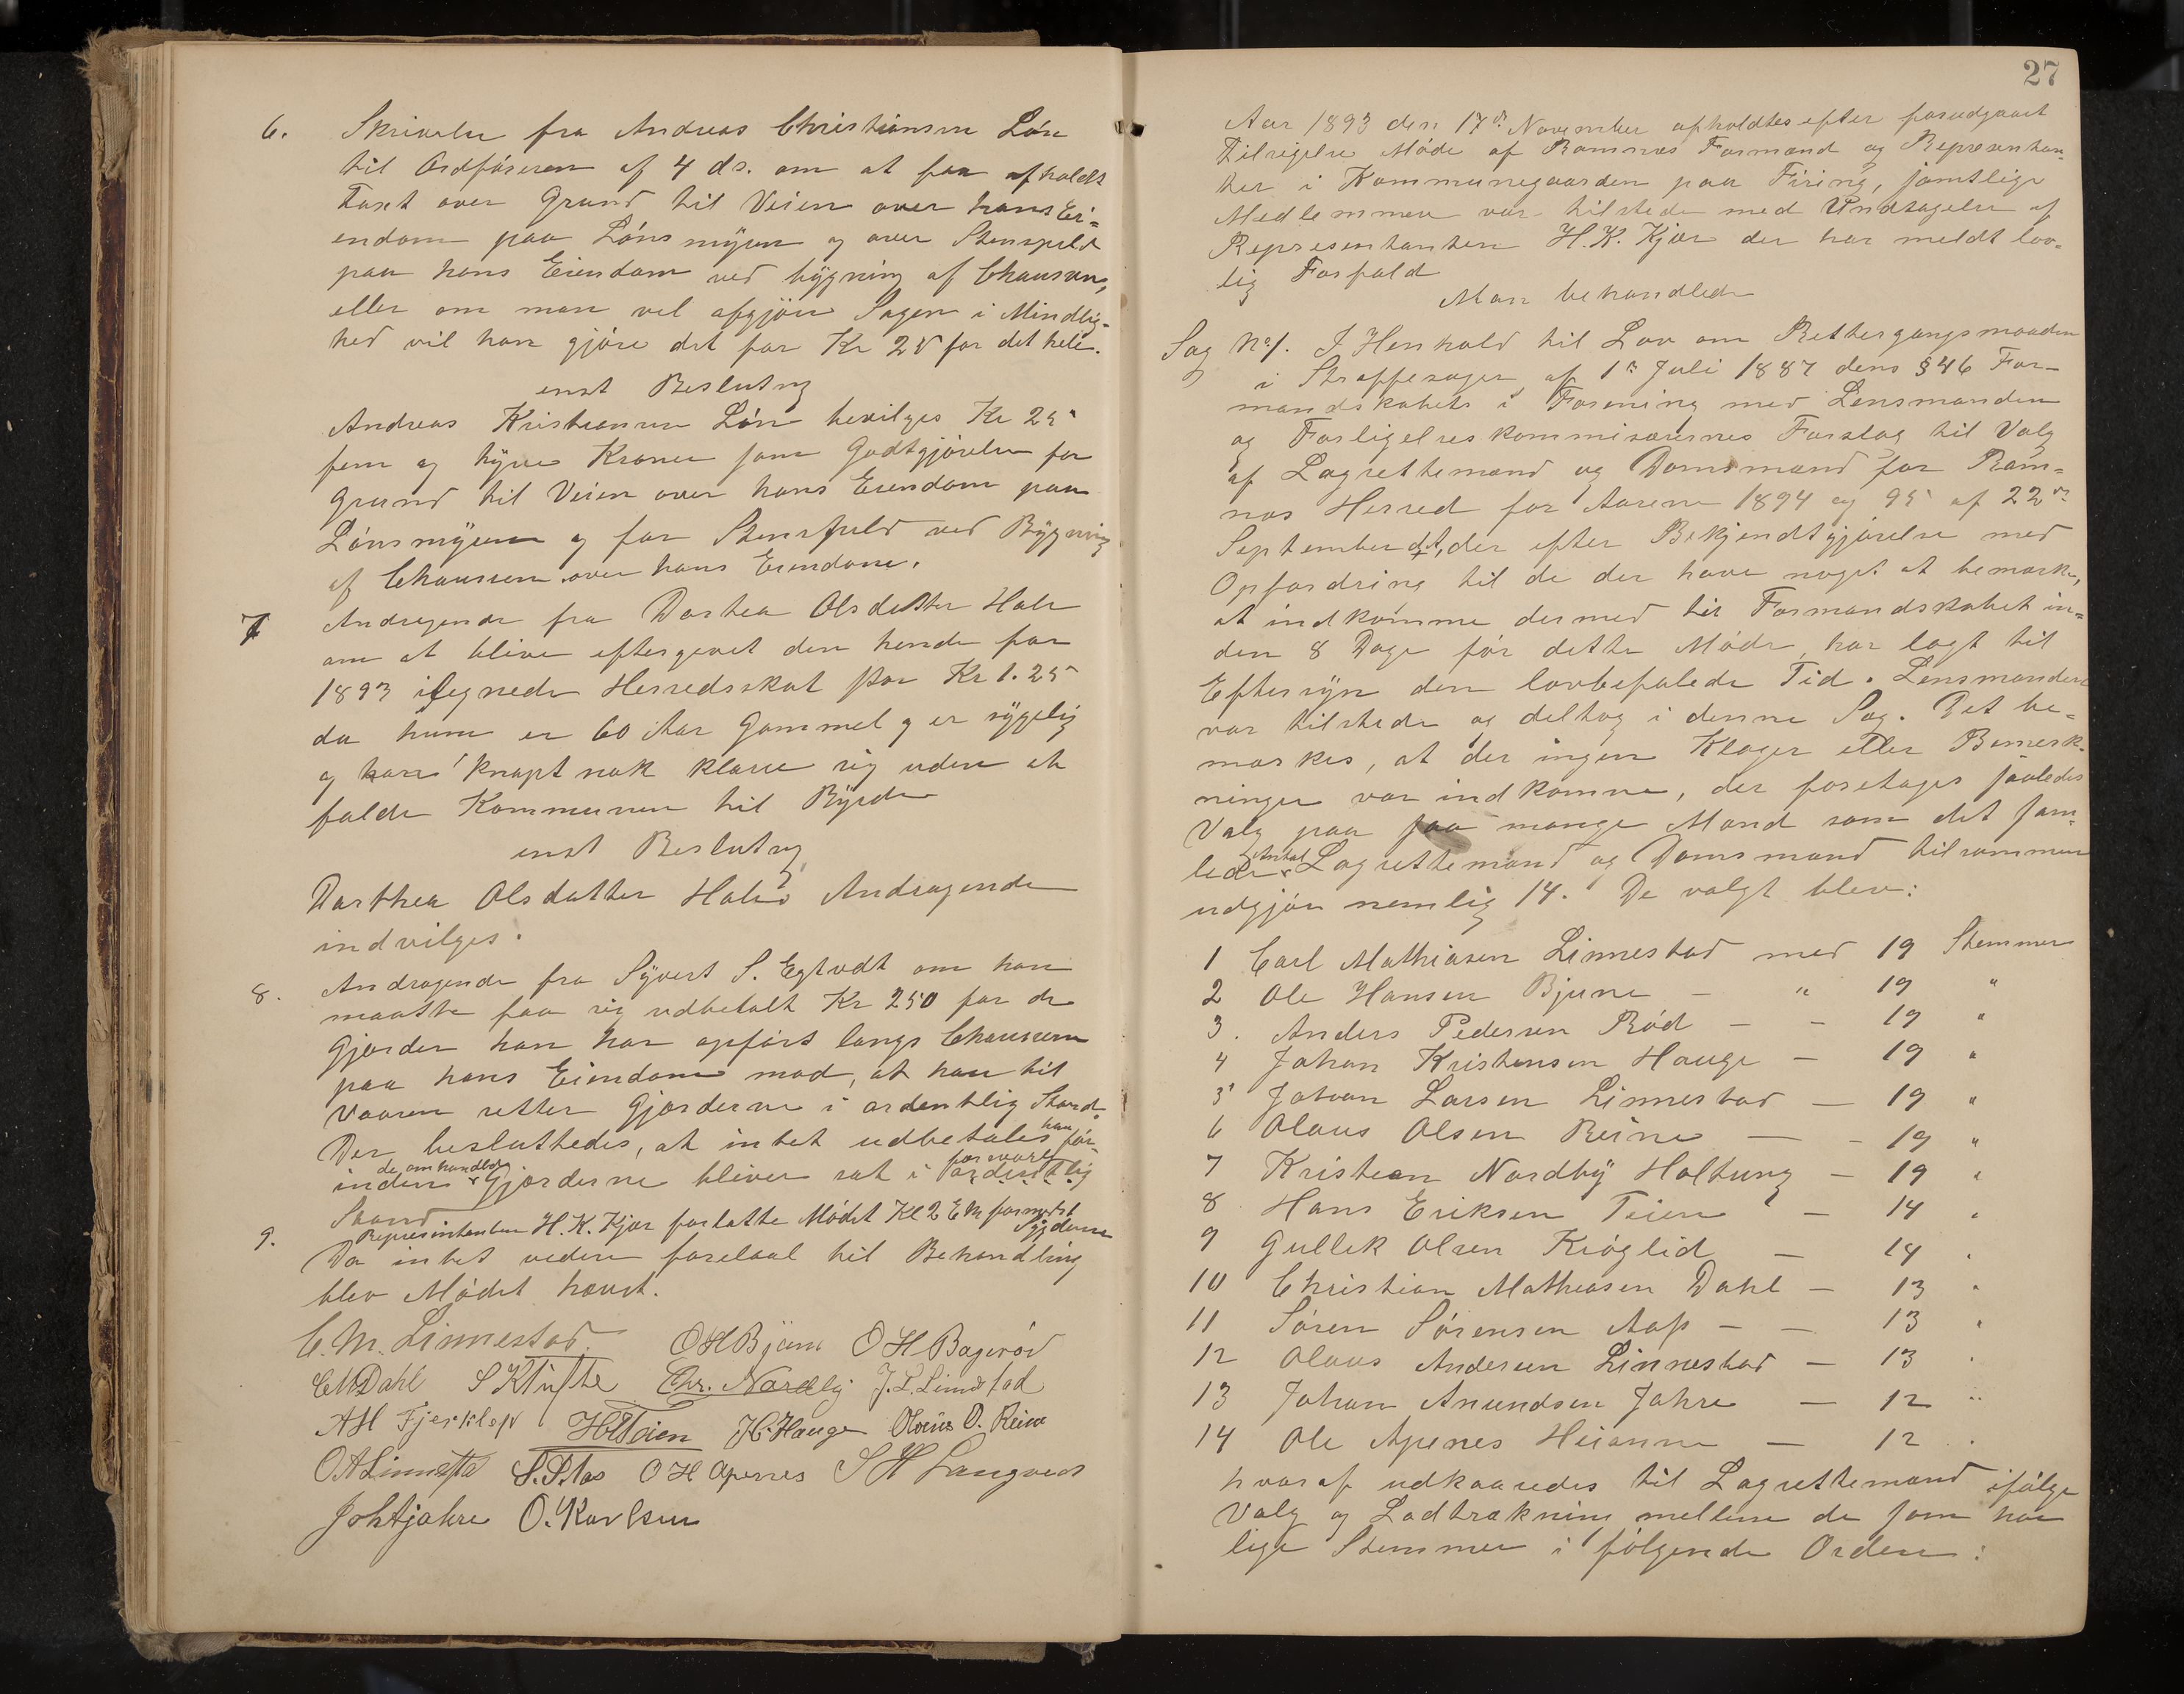 6. Skrivelse fra Andreas Christiansen Lön
til Ordföreren af 4 ds. om at faa afholdt
Taxt over Grund til Veien over hans Ei-
endom paa Lönsmyren og over Stenspild
paa hans Eiendom ved bygning af Chausseen,
eller om man vel afgjöre Sagen i Mindlig-
hed vil han gjöre det for Kr 25 for det hele.
enst Beslutng
Andreas Kristiansen Lön bevilges Kr 25
fem og tyve Kroner som Godtgjörelse for
Grund til Veien over hans Eiendom paa
Lönsmyren og for Stensfuld ved Bygning
af Chausseen over hans Eiendom.
7 Andragende fra Dorthea Olsdatter Hole
om at blive eftergivet den hende for
1893 ilegnede Herredsskat stor Kr 1.25
da hun er 60 Aar Gammel og er sygelig
og kan knapt nok klare sig uden at
falde Kommunen til Byrde
enst Beslutng
Dorthea Olsdatter Holes Andragende
indvilges.
8. Andragende fra Syvert S. Egtvedt om han
maatte faa sig udbetalt Kr 250 for de
Gjærder han har opfört langs Chausseen
paa hans Eiendom mod, at han til
Vaaren setter Gjærderne i ordentlig Stand.
Der besluttedes, at intet udbetales ham för-
inden de omhandlede Gjærderne bliver sat i forsvarlig ordentlig
Stand
9. Representanten H. K. Kjær forlatte Mödet Kl 2 Em formedelst Sygdom
Da intet videre forelaa til Behandling
blev Mödet hævet.
C. M. Linnestad OHBjune O H Bageröd
CMDahl S Klufte Chr. Nordby J. L. Linnestad
AH Fjerklep HETeien J K Hauge Olaus O. Reine
OALinnesta S.S Aas O H Apenes S H Langved
JohAJahre O. Karlsen
27
Aar 1893 den 17de November afholdtes efter forudgaaet
Tilsigelse Möde af Ramnæs Formænd og Repræsentan-
ter i Kommunegaarden paa Firing, samtlige
Medlemmer var tilstede med Undtagelse af
Representanten H. K. Kjær der har meldt lov-
lig Forfald
Man behandlede
Sag No 1. I Henhold til Lov om Rettergangsmaaden
i Straffesager af 1ste Juli 1887 dens § 46 For-
mandskabets i Forening med Lensmanden
og Forligelseskommisærernes Forslag til Valg
af Lagrettemænd og Domsmænd for Ram-
næs Herred for Aarene 1894 og 95 af 22de
September d. A, der efter Bekjendtgjörelse med
Opfordring til de der have noget at bemærke,
at indkomme dermed til Formandskabet in-
den 8 Dage för dette Möde, har lagt til
Eftersyn den lovbefalede Tid. Lensmanden
var tilstede og deltog i denne Sag. Det be-
mærkes, at der ingen Klager eller Bemærk-
ninger var indkomne, der foretages saaledes
Valg paa saa mange Mænd som det sam-
lede Antal Lagrettemænd og Domsmænd tilsammen
udgjör nemlig 14. De valgt blev:
1 Carl Mathiasen Linnestad med 19 Stemmer
2 Ole Hansen Bjune - " 19 "
3. Anders Pedersen Röd - - 19 "
4 Johan Kristensen Hauge - 19 "
5 Johan Larsen Linnestad - 19 "
6 Olaus Olsen Reine - - 19 "
7 Kristian Nordby Holtung - 19 "
8 Hans Eriksen Teien - 14 "
9 Gullik Olsen Kröglid - 14 "
10 Christian Mathiasen Dahl - 13 "
11 Sören Sörensen Aas - - 13 "
12 Olaus Andersen Linnestad - 13 "
13 Johan Anundsen Jahre - 12 "
14 Ole Apenes Heianne - 12 "
hvoraf udkaaredes til Lagrettemænd ifölge
Valg og Lodtrækning mellem de som har
lige Stemmer i fölgende Orden: